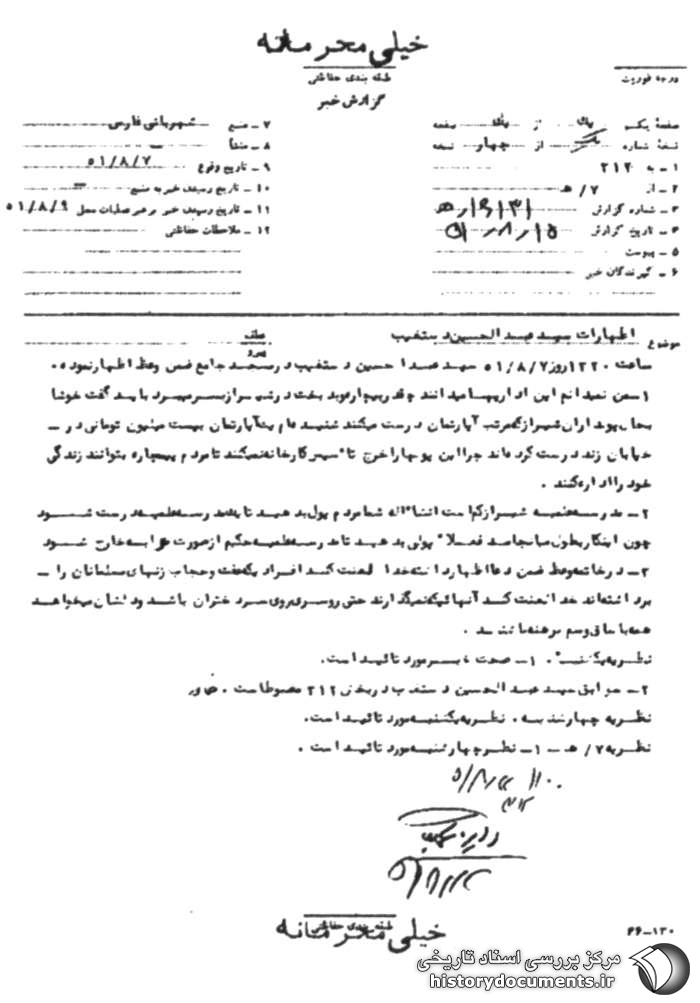 خیلی محرمانه
طبقه بندی حفاظتی
درجه فوریت
گزارش خبر
صفحه یکم از یک صفحه
نسخه شماره یک از چهار نسخه
۱ـ به ۳۱۲
۲ـ از ۷/ هـ
۳ـ شماره گزارش
۴ـ تاریخ گزارش
۵ـ پیوست
۶ـ گیرندگان خبر
۷ـ منبع شهربانی فارس
۸ـ منشأ
۹ـ تاریخ وقوع ۵۱/۸/۷
۱۰ـ تاریخ رسیدن خبر به منبع
۱۱ـ تاریخ رسیدن خبر برهبر عملیات محل ۵۱/۸/۹
۱۲ـ ملاحظات حفاظتی
موضوع اظهارات سید عبدالحسین دستغیب
ساعت ۱۲۲۰ روز ۵۱/۸/۷ سید عبدالحسین دستغیب در مسجد جامع ضمن وعظ اظهار نموده.
۱ـ من نمیدانم این اداریها میدانند چقدر بیچاره و بدبخت در شیراز بسر میبرد باید گفت خوشا
بحال پولداران شیراز که مرتب آپارتمان درست میکنند شنیده ام یک آپارتمان بیست میلیون تومانی در ـ
خیابان زند درست کرده اند چرا این پولها را خرج تأسیس کارخانه نمیکنند تا مردم بیچاره بتوانند زندگی
خود را اداره کنند.
۲ـ مدرسه علمیه شیراز کم است انشاءاله شما مردم پول بدهید تا چند مدرسه علمیه درست شود
چون اینکار بطول میانجامد فعلاً پولی بدهید تا مدرسه علمیه حکیم از صورت خرابه خارج شود
۳ـ در خاتمه وعظ ضمن دعا اظهار داشته خدا لعنت کند افرادیکه عفت و حجاب زنهای مسلمانان را ـ
برداشته اند خدا لعنت کند آنهائیکه نمیگذارند حتی روسری روی سر دختران باشد و دلشان میخواهد
همه با ساق و سر برهنه باشند.
نظریه یکشنبه. ۱ـ صحت خبر مورد تائید است.
۲ـ سوابق سید عبدالحسین دستغیب در بخش ۳۱۲ مضبوط است.
نظریه چهارشنبه. نظریه یکشنبه مورد تائید است.
نظریه ۷/ هـ ـ ۱ـ نظر چهارشنبه مورد تائید است.
طبقه بندی حفاظتی
خیلی محرمانه
۲۶ـ۱۳۰
مرکز بررسی اسناد تاریخی
historydocuments.ir